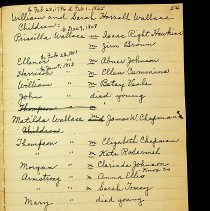 b Feb 22, 1786 d Feb 1, 1855
William and Sarah Horrall Wallace
Children:
Priscilla Wallace m Isaac Right Hawkins
" " m Jim Brown
Ellenor " m Abner Johnson
Harrison " m Ellen Cummins
William " m Betsey Veale
John " died young
Thompson
Matilda Wallace m James W. Chapman
Children
Thompson " m Elizabeth Chapman
" " m Kate Rodarmel
Morgan " m Clarinda Johnson
Knox Co
Armstrong " m Anna Ellis
" " m Sarah
Mary " died young